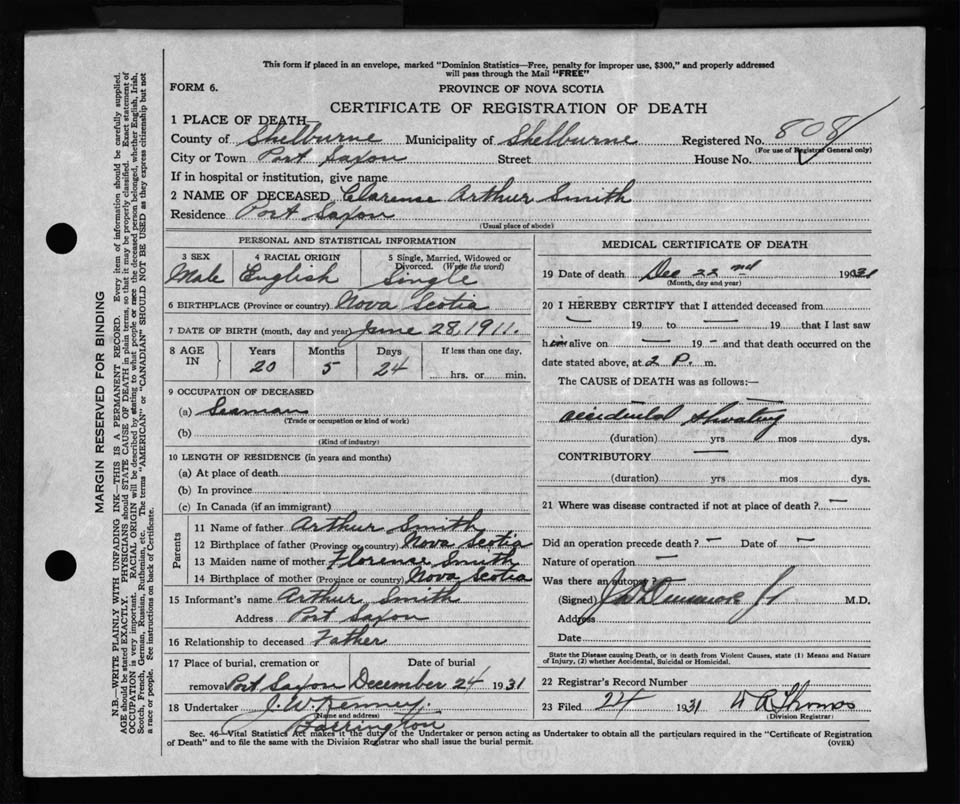 This form if placed in an envelope, marked "Dominion Statistics—Free, penalty for improper use, $300," and properly addressed
will pass through the Mail "FREE"
FORM 6.
PROVINCE OF NOVA SCOTIA
CERTIFICATE OF REGISTRATION OF DEATH
1 PLACE OF DEATH
County of Shelburne Municipality of Shelburne Registered No. 808
(For use of Registrar General only)
City or Town Port Saxon Street House No.
If in hospital or institution, give name
2 NAME OF DECEASED Clarence Arthur Smith
Residence Port Saxon
(Usual place of abode)
PERSONAL AND STATISTICAL INFORMATION
3 SEX 4 RACIAL ORIGIN 5 Single, Married, Widowed or
Divorced. (Write the word)
Male English Single
6 BIRTHPLACE (Province or country) Nova Scotia
7 DATE OF BIRTH (month, day and year) June 28, 1911.
8 AGE IN Years Months Days If less than one day,
20 5 24 hrs. or min.
9 OCCUPATION OF DECEASED
(a) Seaman
(Trade or occupation or kind of work)
(b)
(Kind of industry)
10 LENGTH OF RESIDENCE (in years and months)
(a) At place of death
(b) In province
(c) In Canada (if an immigrant)
Parents
11 Name of father Arthur Smith
12 Birthplace of father (Province or country) Nova Scotia
13 Maiden name of mother Florence Smith
14 Birthplace of mother (Province or country) Nova Scotia
15 Informant's name Arthur Smith
Address Port Saxon
16 Relationship to deceased Father
17 Place of burial, cremation or Date of burial
removal Port Saxon December 24 1931
18 Undertaker J. W. Kenney.
(Name and address)
Barrington
MEDICAL CERTIFICATE OF DEATH
19 Date of death Dec 22nd 1931
(Month, day and year)
20 I HEREBY CERTIFY that I attended deceased from
— 19 to — 19 that I last saw
h alive on — 19 – and that death occurred on the
date stated above, at 2 P. m.
The CAUSE of DEATH was as follows:—
accidental shooting
(duration) yrs mos dys.
CONTRIBUTORY —
(duration) yrs mos dys.
21 Where was disease contracted if not at place of death? —
Did an operation precede death? – Date of –
Nature of operation —
Was there an autopsy?
(Signed) M.D.
Address
Date
State the Disease causing Death, or in death from Violent Causes, state (1) Means and Nature
of Injury, (2) whether Accidental, Suicidal or Homicidal.
22 Registrar's Record Number
23 Filed 24 1931 W A Thomas
(Division Registrar)
Sec. 46—Vital Statistics Act makes it the duty of the Undertaker or person acting as Undertaker to obtain all the particulars required in the "Certificate of Registration
of Death" and to file the same with the Division Registrar who shall issue the burial permit. (OVER)
MARGIN RESERVED FOR BINDING
N.B.—WRITE PLAINLY WITH UNFADING INK—THIS IS A PERMANENT RECORD. Every item of information should be carefully supplied.
AGE should be stated EXACTLY. PHYSICIANS should STATE CAUSE OF DEATH in plain terms, so that it may be properly classified. Exact statement of
OCCUPATION is very important. RACIAL ORIGIN will be described by stating to what people or race the deceased person belonged, whether English, Irish,
Scotch, French, German, Russian, Ruthenian, etc. The terms "AMERICAN" or "CANADIAN" SHOULD NOT BE USED as they express citizenship but not
a race or people. See instructions on back of Certificate.